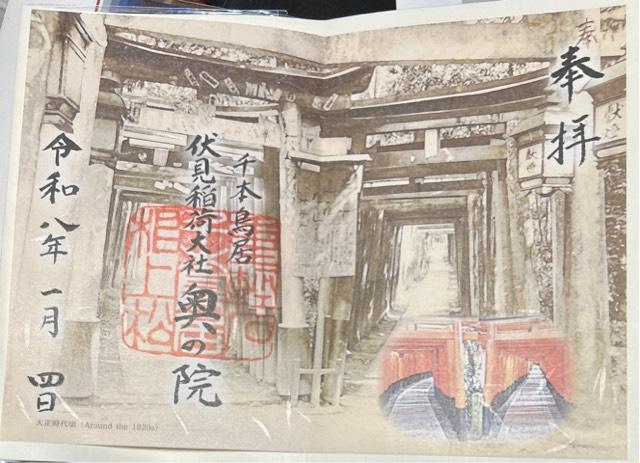 奉拝
千本鳥居
伏見稲荷大社 奥の院
令和八年 一月 四日
大正時代頃 (Around the 1920s)
献燈